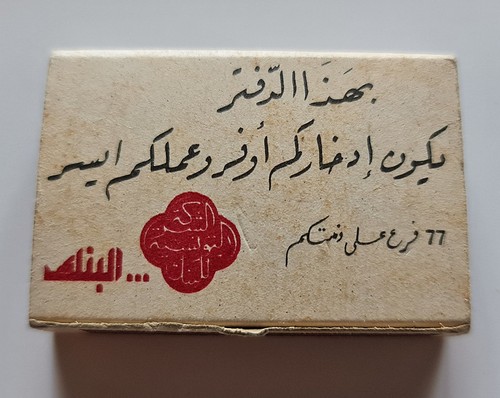 بهَذَا الدّفتر
يكون إدخاركم أوفر وعملكم ايسر
77 فرع على ذمتكم
الشركة
التونسية
للبنك
البنك ...